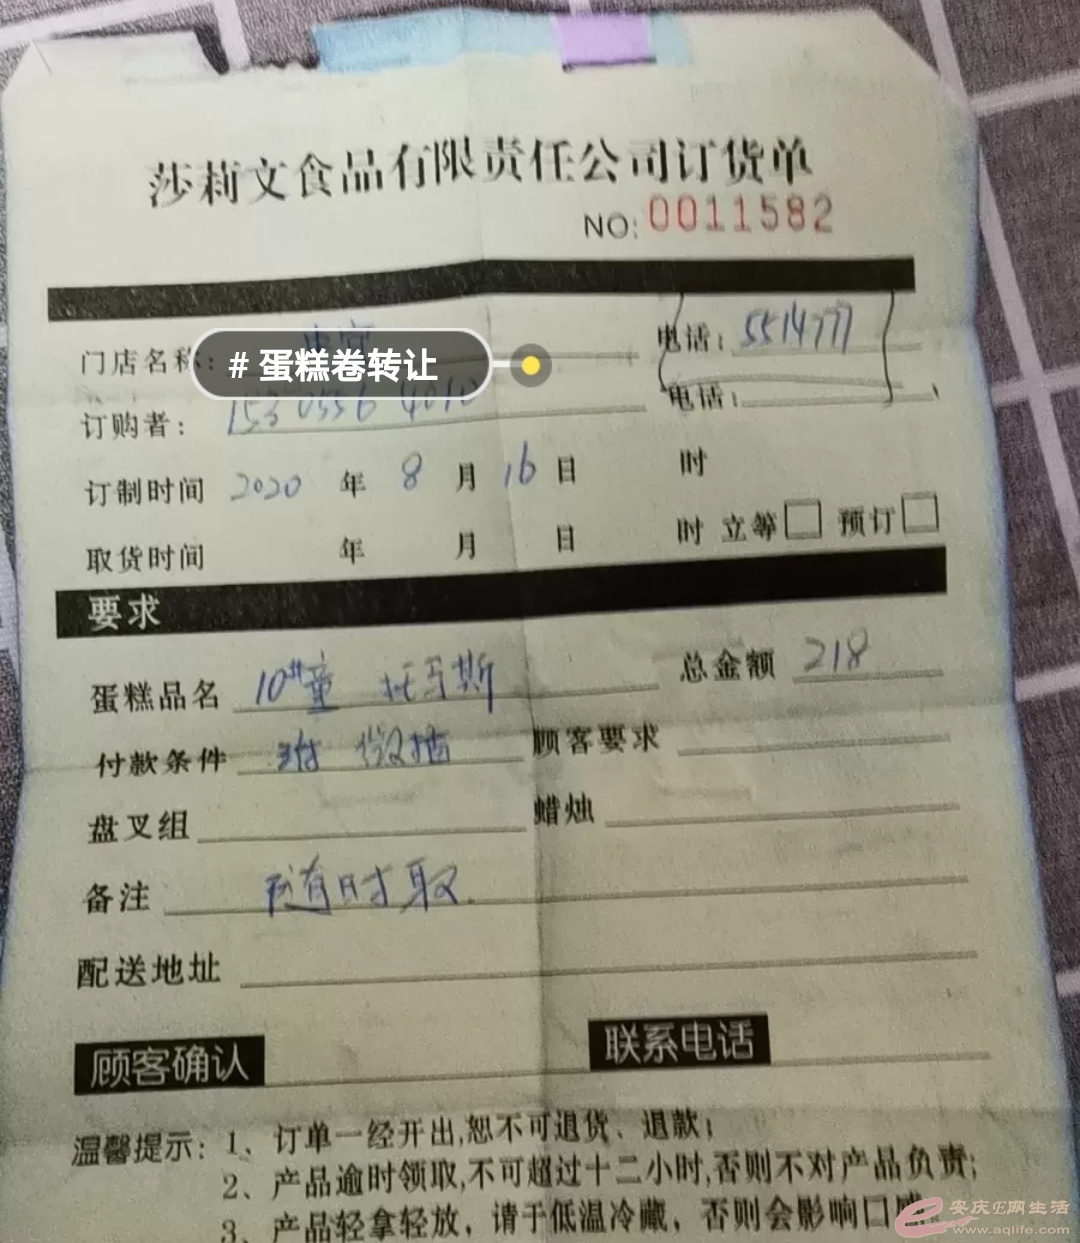 莎莉文食品有限责任公司订货单
NO: 0011582
门店名称: 电话: 5514777
# 蛋糕卷转让
订购者: 电话:
订制时间 2020 年 8 月 16 日 时
取货时间 年 月 日 时 立等 预订
要求
蛋糕品名 10#童 托马斯 总金额 218
付款条件 顾客要求
盘叉组 蜡烛
备注 随时取
配送地址
顾客确认 联系电话
温馨提示: 1、订单一经开出,恕不可退货、退款;
2、产品逾时领取,不可超过十二小时,否则不对产品负责;
3、产品轻拿轻放，请于低温冷藏，否则会影响口感。
安庆E网生活
www.aqlife.com